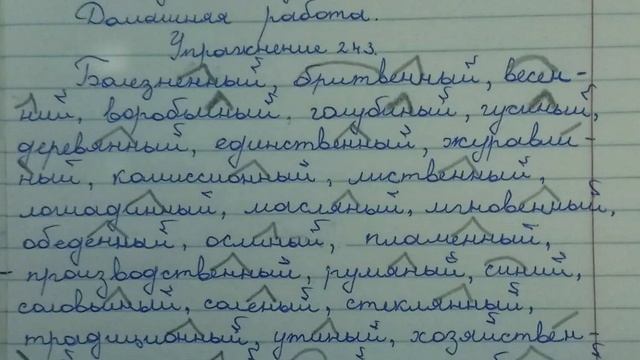 Домашняя работа.
Упражнение 243.
Болезненный, бритвенный, весен-
ний, воробьиный, голубиный, гусиный,
деревянный, единственный, журавли-
ный, комиссионный, лиственный,
лошадинный, масляный, мгновенный,
обеденный, ослиный, пламенный,
производственный, румяный, синий,
соловьиный, соленый, стеклянный,
традиционный, утиный, хозяйствен-